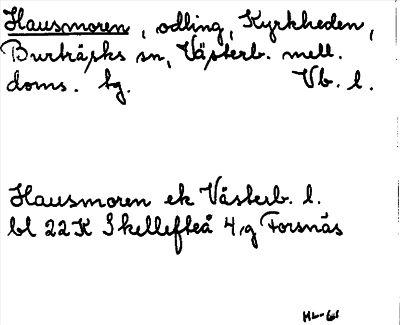 Hausmoren, odling, Kyrkheden,
Burträsks sn, Västerb. mell.
doms. tg. Vb. l.
Hausmoren ek Västerb. l.
bl 22K Skellefteå 4,g Forsnäs